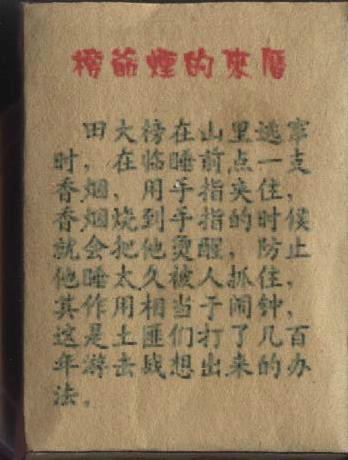 榜爺煙的來曆
田大榜在山里逃窜
时，在临睡前点一支
香烟，用手指夹住，
香烟烧到手指的时候
就会把他烫醒，防止
他睡太久被人抓住，
其作用相当于闹钟，
这是土匪们打了几百
年游击战想出来的办
法。